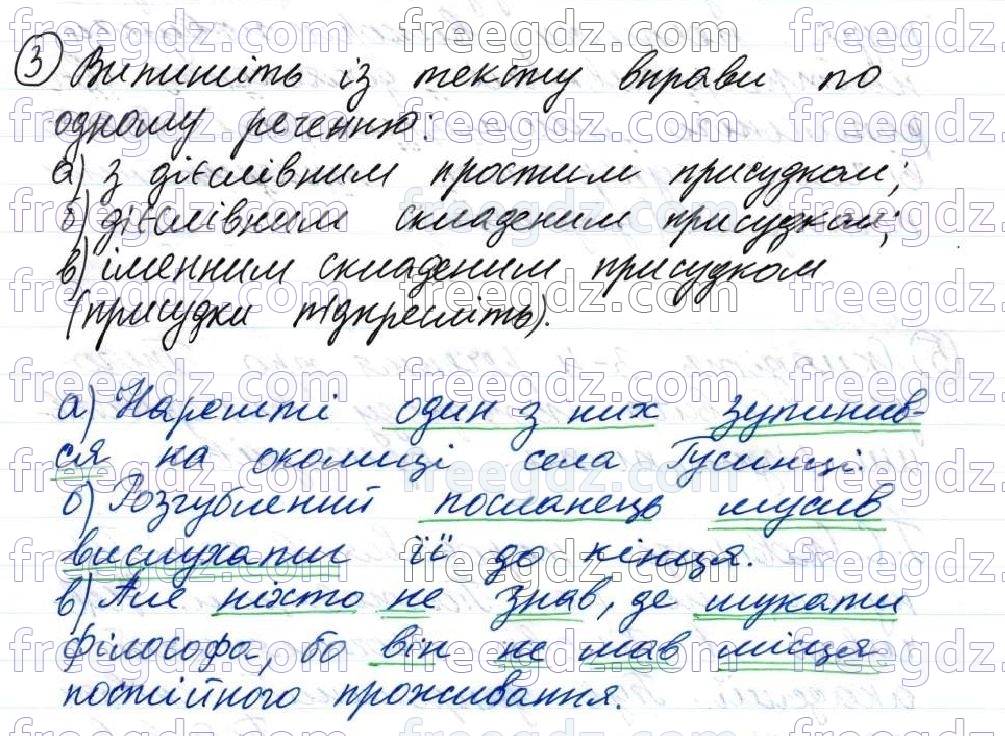 3 Випишіть із тексту вправи по
одному реченню:
а) з дієслівним простим присудком;
б) дієслівним складеним присудком;
в) іменним складеним присудком
(присудки підкресліть).
а) Нарешті один з них зупинив-
ся на околиці села Гусинці.
б) Розгублений посланець мусив
вислухати її до кінця.
в) Але ніхто не знав, де шукати
філософа, бо він не мав місця
постійного проживання.
freegdz.com